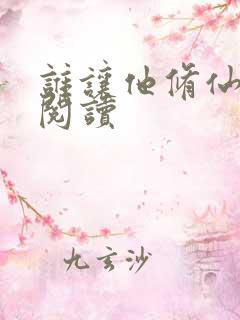 誰讓他脩仙
閱讀
九玄沙